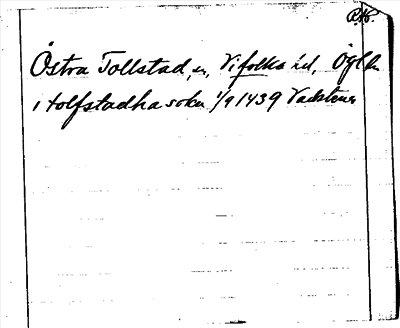 P.R.
Östra Tollstad, sn, Vifolka hd, Ögl. ln
i Tolfstadha sokn 1/9 1439 Vadstena